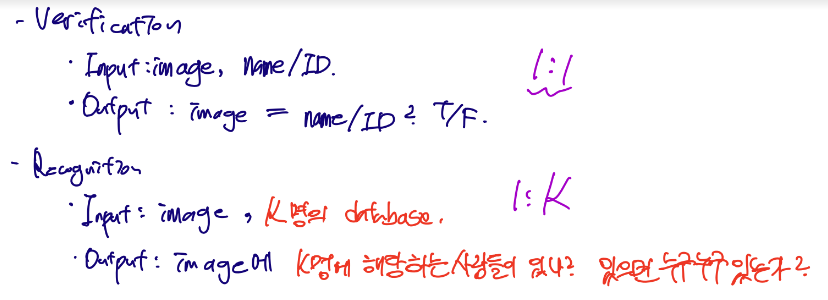 - Verification
· Input: image, name/ID. 1:1
· Output : image = name/ID? T/F.
- Recognition
· Input: image, K명의 database. 1:K
· Output: image에 K명에 해당하는 사람들이 있나? 있으면 누구누구 있는가?